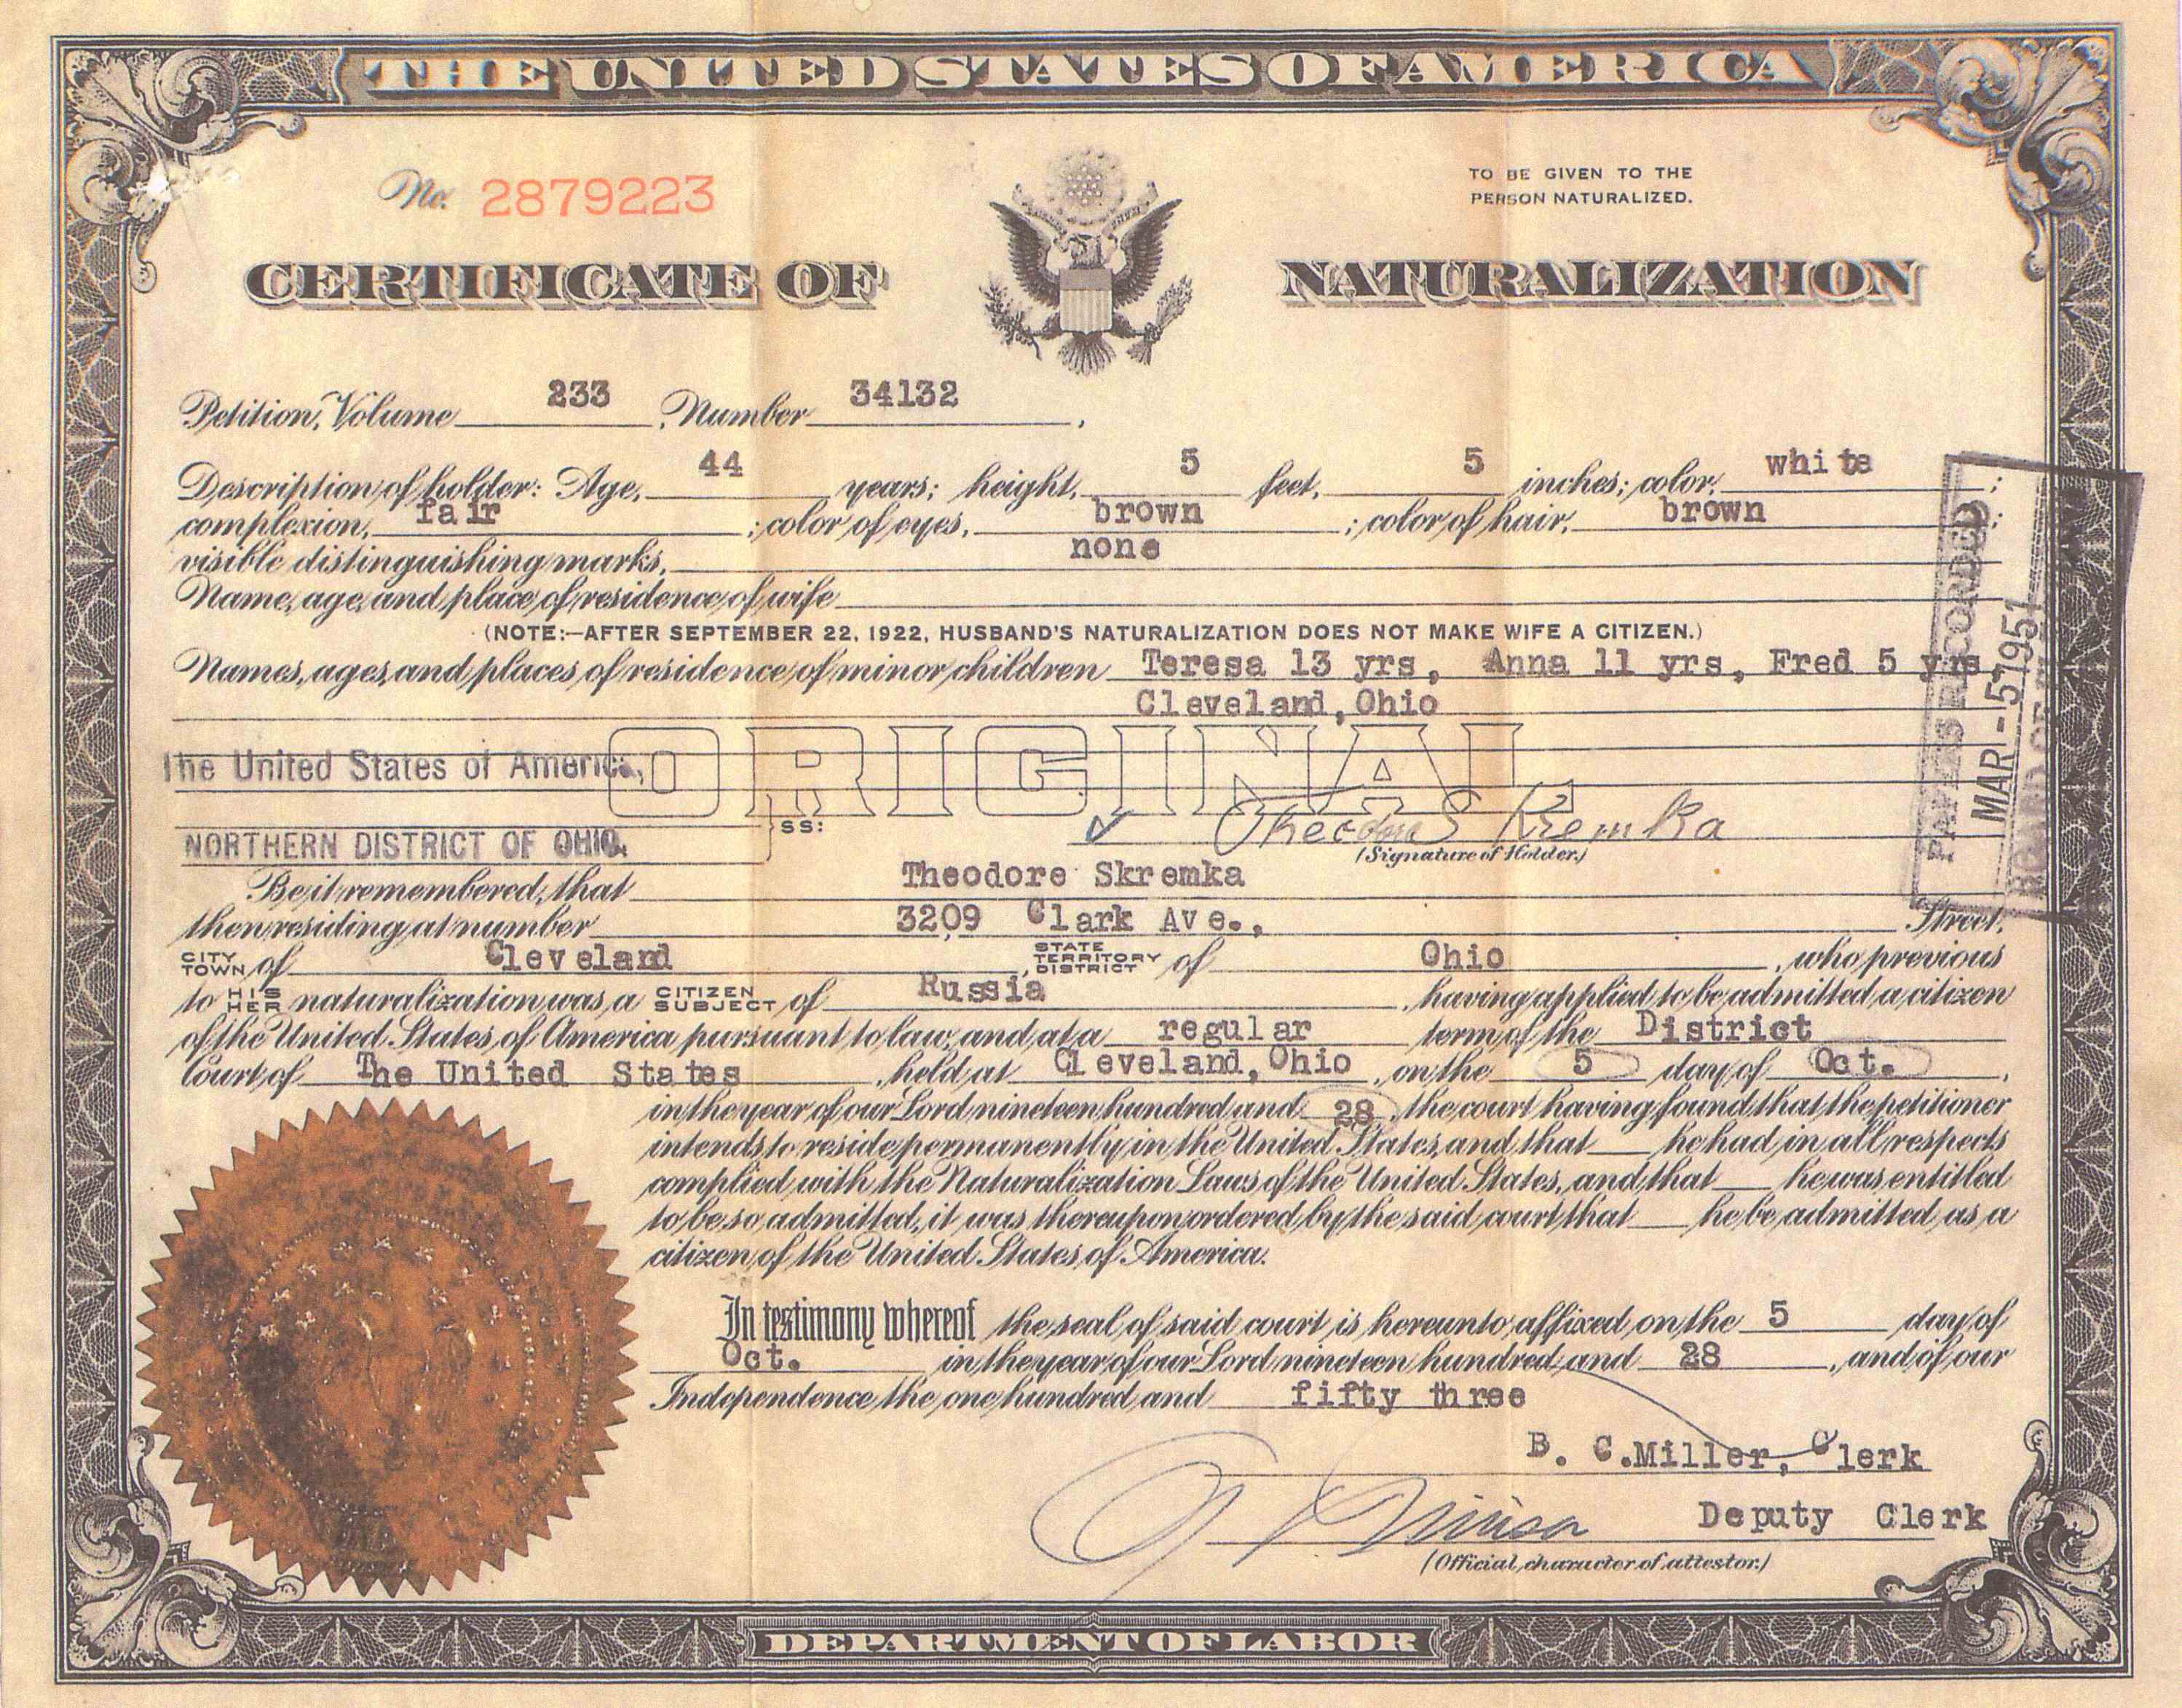 THE UNITED STATES OF AMERICA
No. 2879223
TO BE GIVEN TO THE
PERSON NATURALIZED.
CERTIFICATE OF NATURALIZATION
Petition, Volume 233, Number 34132,
Description of holder: Age, 44 years; height, 5 feet, 5 inches; color, white;
complexion, fair; color of eyes, brown; color of hair, brown;
visible distinguishing marks, none
Name, age, and place of residence of wife
(NOTE:—AFTER SEPTEMBER 22, 1922, HUSBAND'S NATURALIZATION DOES NOT MAKE WIFE A CITIZEN.)
Names, ages, and places of residence of minor children Teresa 13 yrs, Anna 11 yrs, Fred 5 yrs
Cleveland, Ohio
ORIGINAL
The United States of America,
ss:
NORTHERN DISTRICT OF OHIO.
Theodore Skremka
(Signature of Holder)
PAPERS RECORDED
MAR - 5 1951
Be it remembered, that Theodore Skremka
then residing at number 3209 Clark Ave., Street,
CITY TOWN of Cleveland, STATE TERRITORY DISTRICT of Ohio, who previous
to HIS HER naturalization was a CITIZEN SUBJECT of Russia, having applied to be admitted a citizen
of the United States of America pursuant to law, and at a regular term of the District
Court of The United States, held at Cleveland, Ohio, on the 5 day of Oct.,
in the year of our Lord nineteen hundred and 28, the court having found that the petitioner
intends to reside permanently in the United States, and that he had in all respects
complied with the Naturalization Laws of the United States, and that he was entitled
to be so admitted, it was thereupon ordered by the said court that he be admitted as a
citizen of the United States of America.
In testimony whereof the seal of said court is hereunto affixed on the 5 day of
Oct. in the year of our Lord nineteen hundred and 28, and of our
Independence the one hundred and fifty three
B. C. Miller, Clerk
Deputy Clerk
(Official character of attestor.)
DEPARTMENT OF LABOR